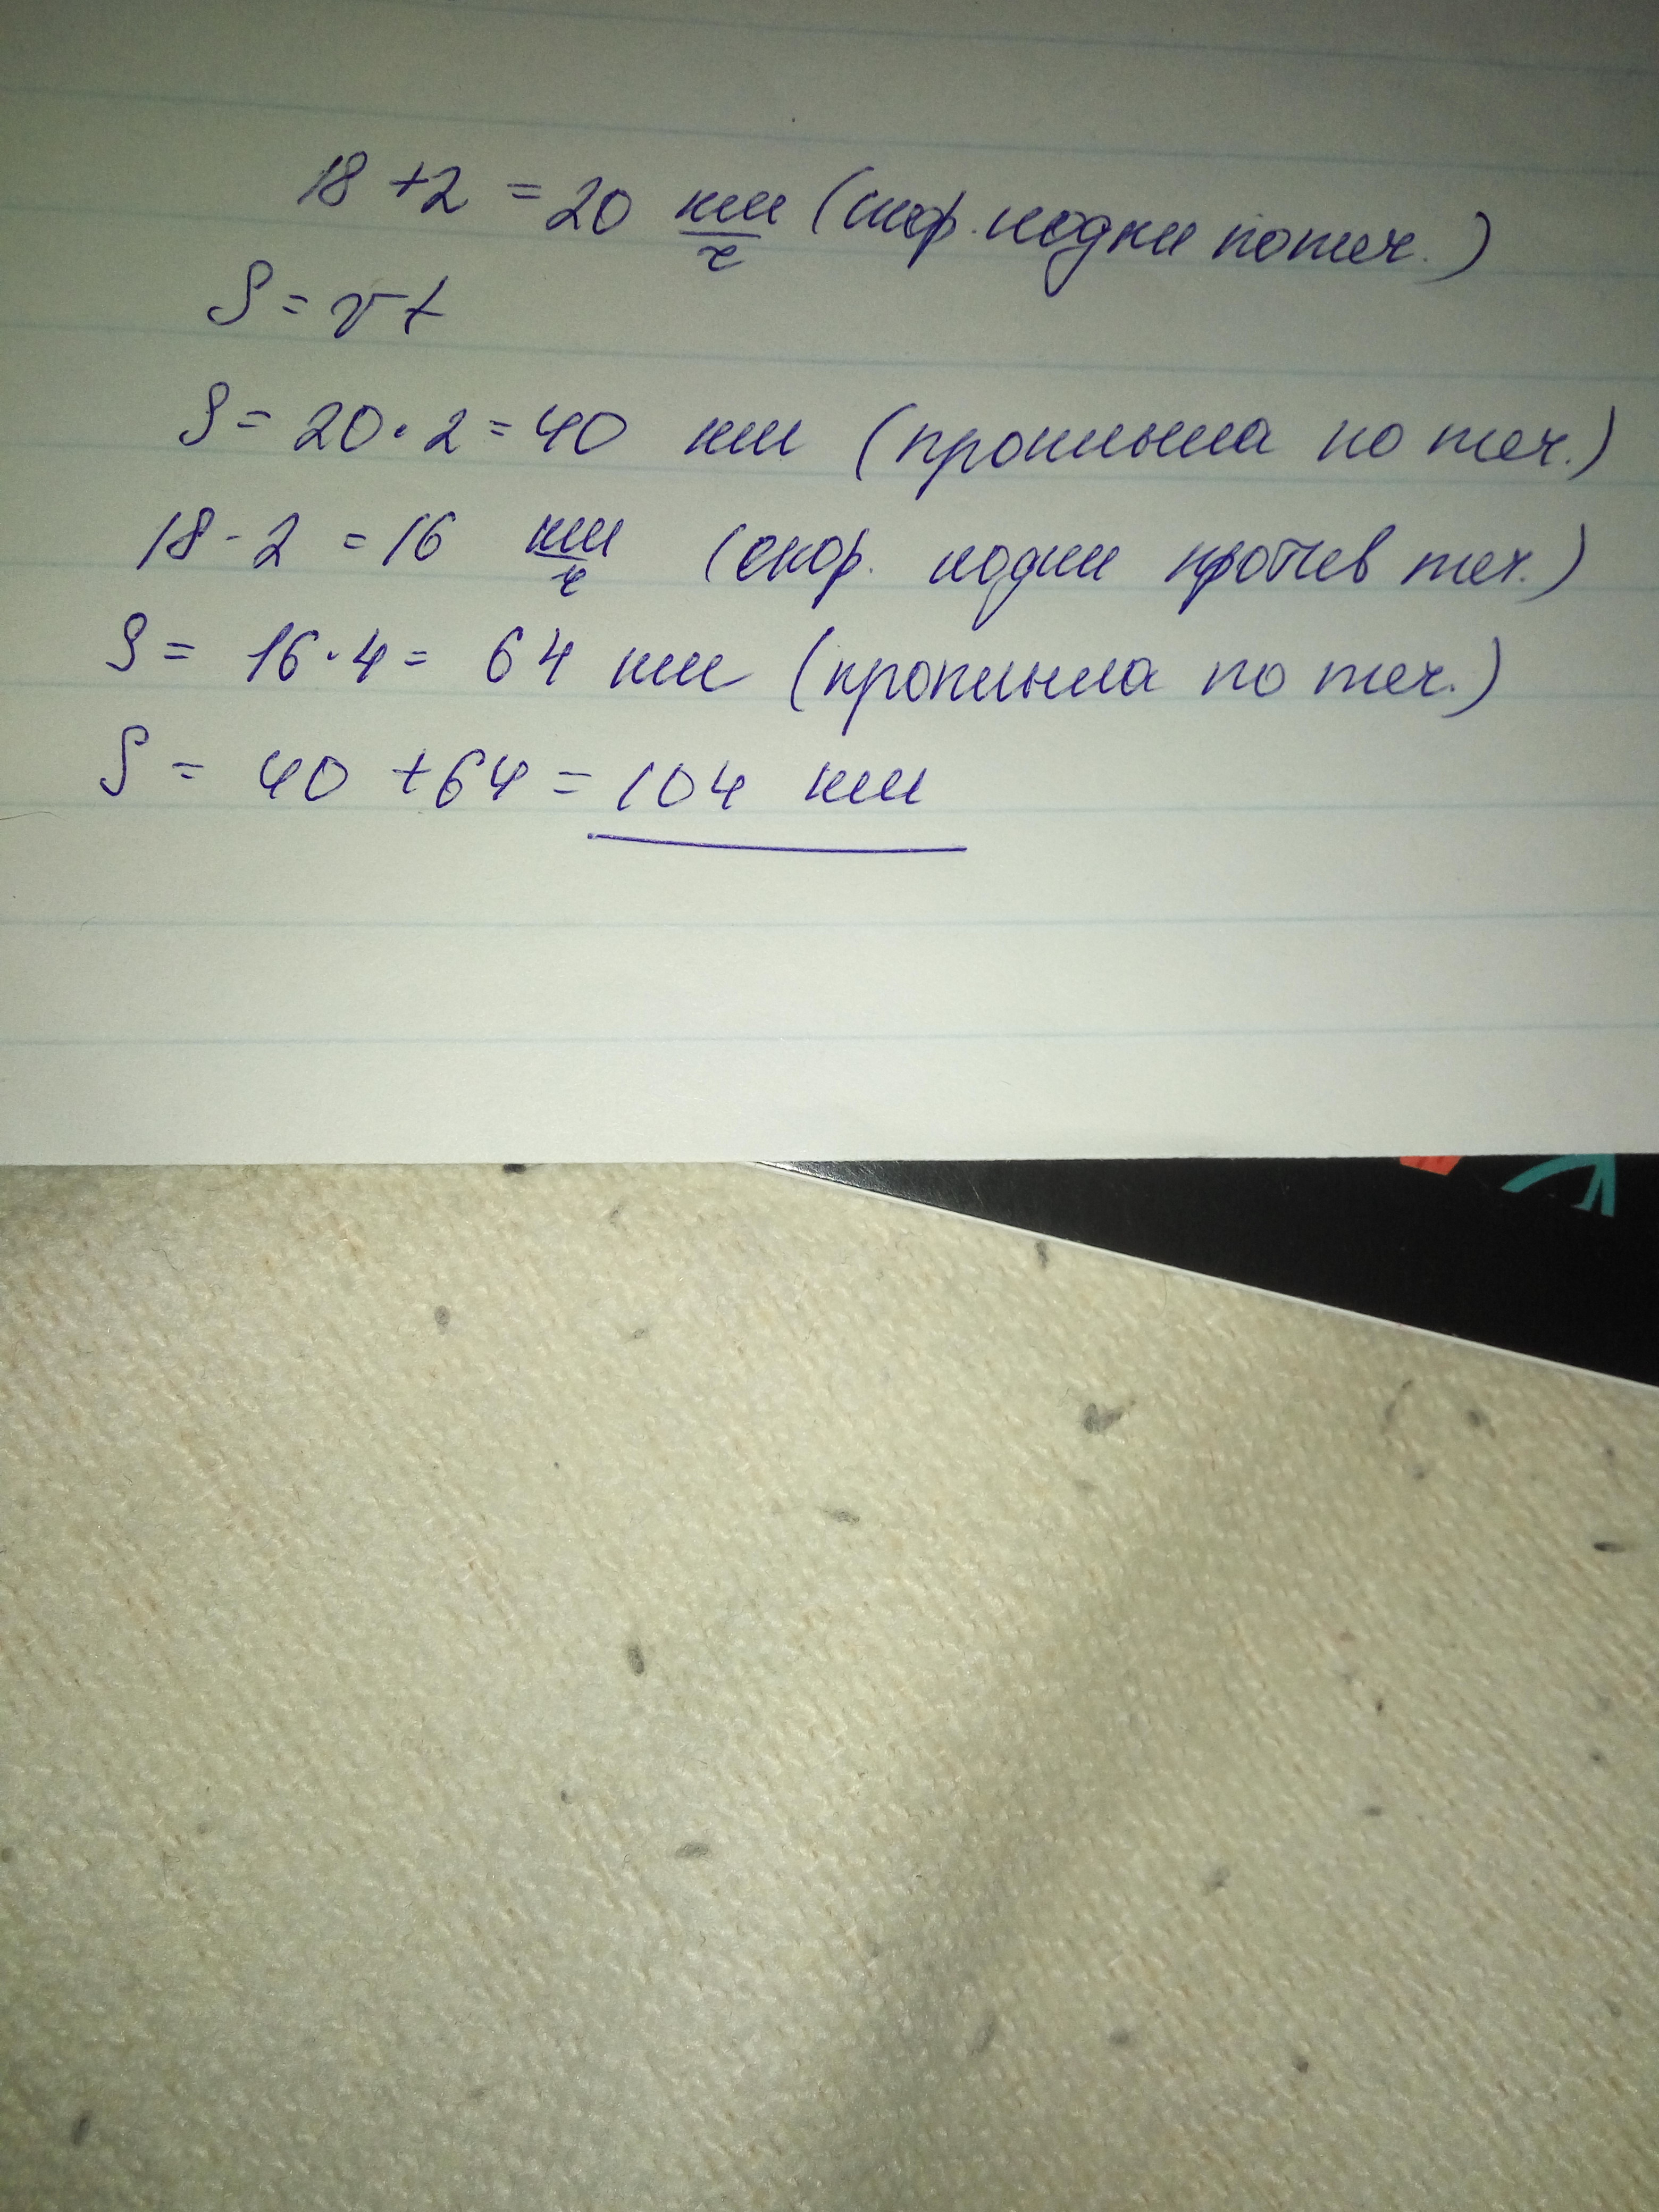 18 + 2 = 20 км/ч (скор. лодки по теч.)
S = vt
S = 20 · 2 = 40 км (проплыла по теч.)
18 - 2 = 16 км/ч (скор. лодки против теч.)
S = 16 · 4 = 64 км (проплыла по теч.)
S = 40 + 64 = 104 км